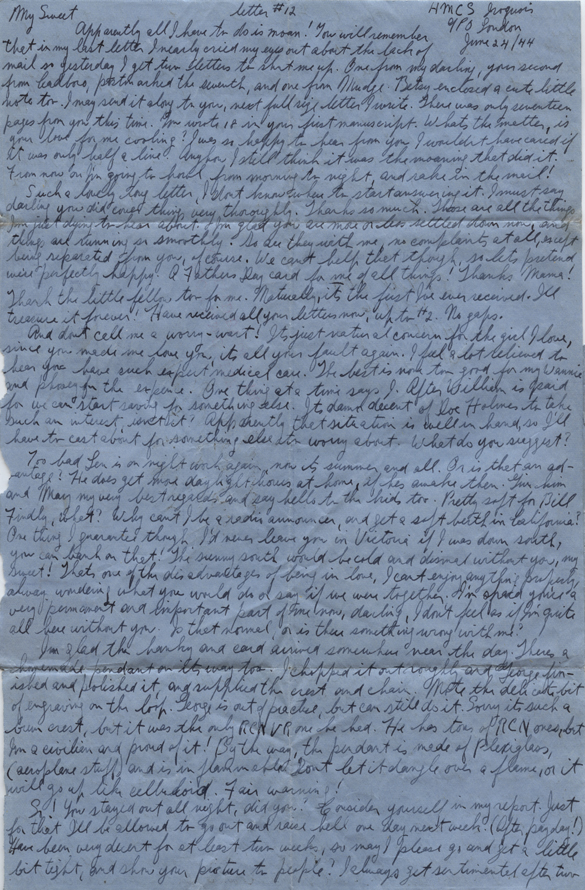 My Sweet letter #12 HMCS Iroquois
GPO London
June 24/44
Apparently all I have to do is moan! You will remember
that in my last letter I nearly cried my eyes out about the lack of
mail so yesterday I get two letters to shut me up. One from my darling, your second
from, postmarked the seventh, and one from Mudge. Betsy enclosed a cute little
note too. I may send it along to you, next full size letter I write. There was only seventeen
pages from you this time. You wrote 18 in your first manuscript. Whats the matter, is
your love for me cooling? I was so happy to hear from you, I wouldn't have cared if
it was only half a line! Anyhow, I still think it was the moaning that did it.
From now on I'm going to howl from morning to night, and rake in the mail!
Such a lovely long letter, I don't know where to start answering it. I must say
darling you did cover things very thoroughly. Thanks so much. Those are all the things
I'm just dying to hear about. I'm glad you are more or less settled down now, and
things are running so smoothly. So are they with me, no complaints at all, except
being separated from you, of course. We can't help that though, so lets pretend
we're perfectly happy. A Fathers Day card to me of all things! Thanks Mama!
Thank the little fellow too for me. Naturally, its the first I've ever received. I'll
treasure it forever! Have received all your letters now, up to #2. No gaps.
And don't call me a worry-wart! Its just natural concern for the girl I love,
since you made me love you, its all your fault again. I feel a lot relieved to
hear you have such expert medical care. The best is none too good for my
and phooey on the expense. One thing at a time says I. After William is paid
for we can start saving for something else. Its damn decent of Doc Holmes to take
such an interest, isn't it? Apparently that situation is well in hand, so I'll
have to cast about for something else to worry about. What do you suggest?
Too bad Len is on night work again, now its summer and all. Or is that an ad-
vantage? He does get more daylight hours at home, if hes awake then. Give him
and Mary my very best regards and say hello to the kids too. Pretty soft for Bill
Findly, what? Why can't I be a radio announcer, and get a soft berth in California?
One thing I guarantee though, I'd never leave you in Victoria if I was down south,
you can bank on that! The sunny south would be cold and dismal without you, my
sweet! Thats one of the disadvantages of being in love, I cant enjoy anything properly
always wondering what you would do or say if we were together. I'm afraid you're a
very permanent and important part of me now, darling, I don't feel as if I'm quite
all here without you. Is that normal or is there something wrong with me?
I'm glad the hanky and card arrived somewhere near the day. Theres a
homemade pendant on its way too. I chopped it out roughly and George fin-
ished and polished it, and supplied the crest and chain. Note the delicate bit
of engraving on the loop. George is out of practise, but can still do it. Sorry its such a
bum crest, but it was the only RCNVR one he had. He has tons of RCN ones, but
I'm a civilian and proud of it! By the way, the pendant is made of Plexiglass,
(aeroplane stuff) and is inflammable. Dont let it dangle over a flame, or it
will go up like celluloid. Fair warning!
So! You stayed out all night, did you? Consider yourself in my report. Just
for that I'll be allowed to go out and raise hell one day next week! (After payday!)
Have been very decent for at least two weeks, so may I please go and get a little
bit tight, and show your picture to people? I always get sentimental after two